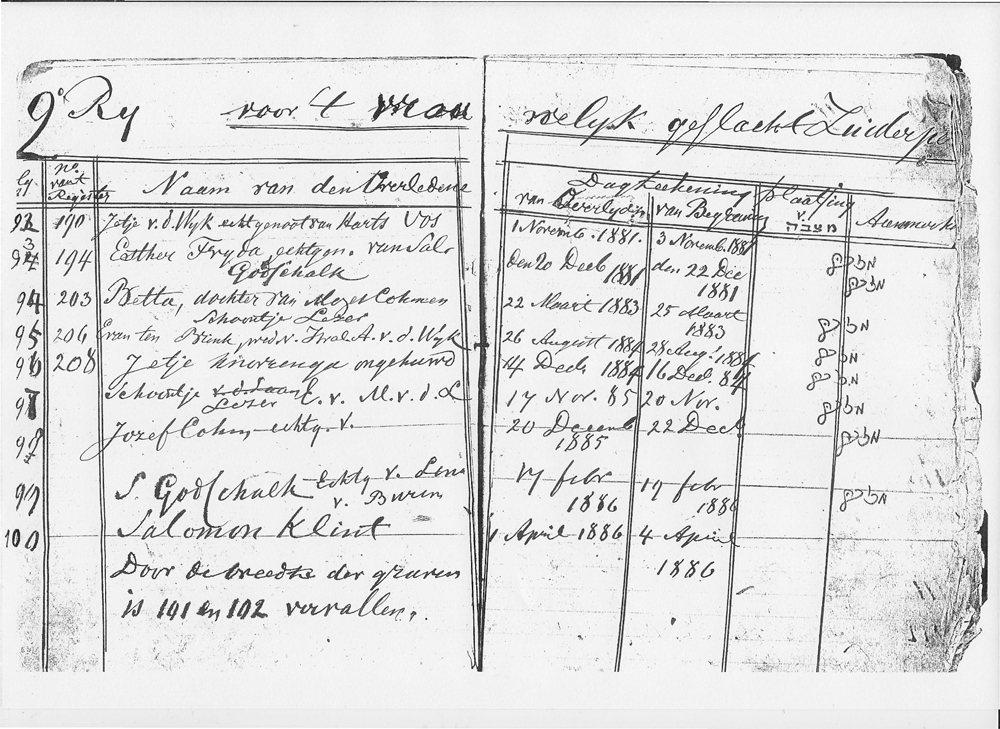 9e Ry voor 't vrouwelyk geslacht Zuiderpo
Lg
No. vant Register
Naam van den Overledene
Dagteekening
van Overlyden
van Begraving
plaatsing v. מצבה
Aanmerk
93 190 Jetje v. d. Wyk echtgenoot van Harts Vos 1 Novemb. 1881. 3 Novemb. 1881
94 194 Esther Fryda echtgen. van Sal. den 20 Decb 1881 den 22 Dec 1881
Godschalk
94 203 Betta, dochter van Mozes Cohmen 22 Maart 1883 25 Maart 1883
Schoontje Lezer
95 206 Eva ten Brink, wed. v. Izral A. v. d. Wyk 26 August 1884 28 Aug. 1884
96 208 Jetje Knorringa ongehuwd 14 Decb 1884 16 Decb. 84
97 Schoontje v. d. Laan E. v. M. v. d. L 17 Nov. 85 20 Nov.
Lezer
98 Jozef Cohen echtg. v. 20 Decemb 1885 22 Decb
99 S. Godschalk echtg v. Lena 17 febr 1886 19 febr 1886
v. Buren
100 Salomon Klint 1 April 1886 4 April 1886
Door de breedte der graven
is 101 en 102 vervallen.